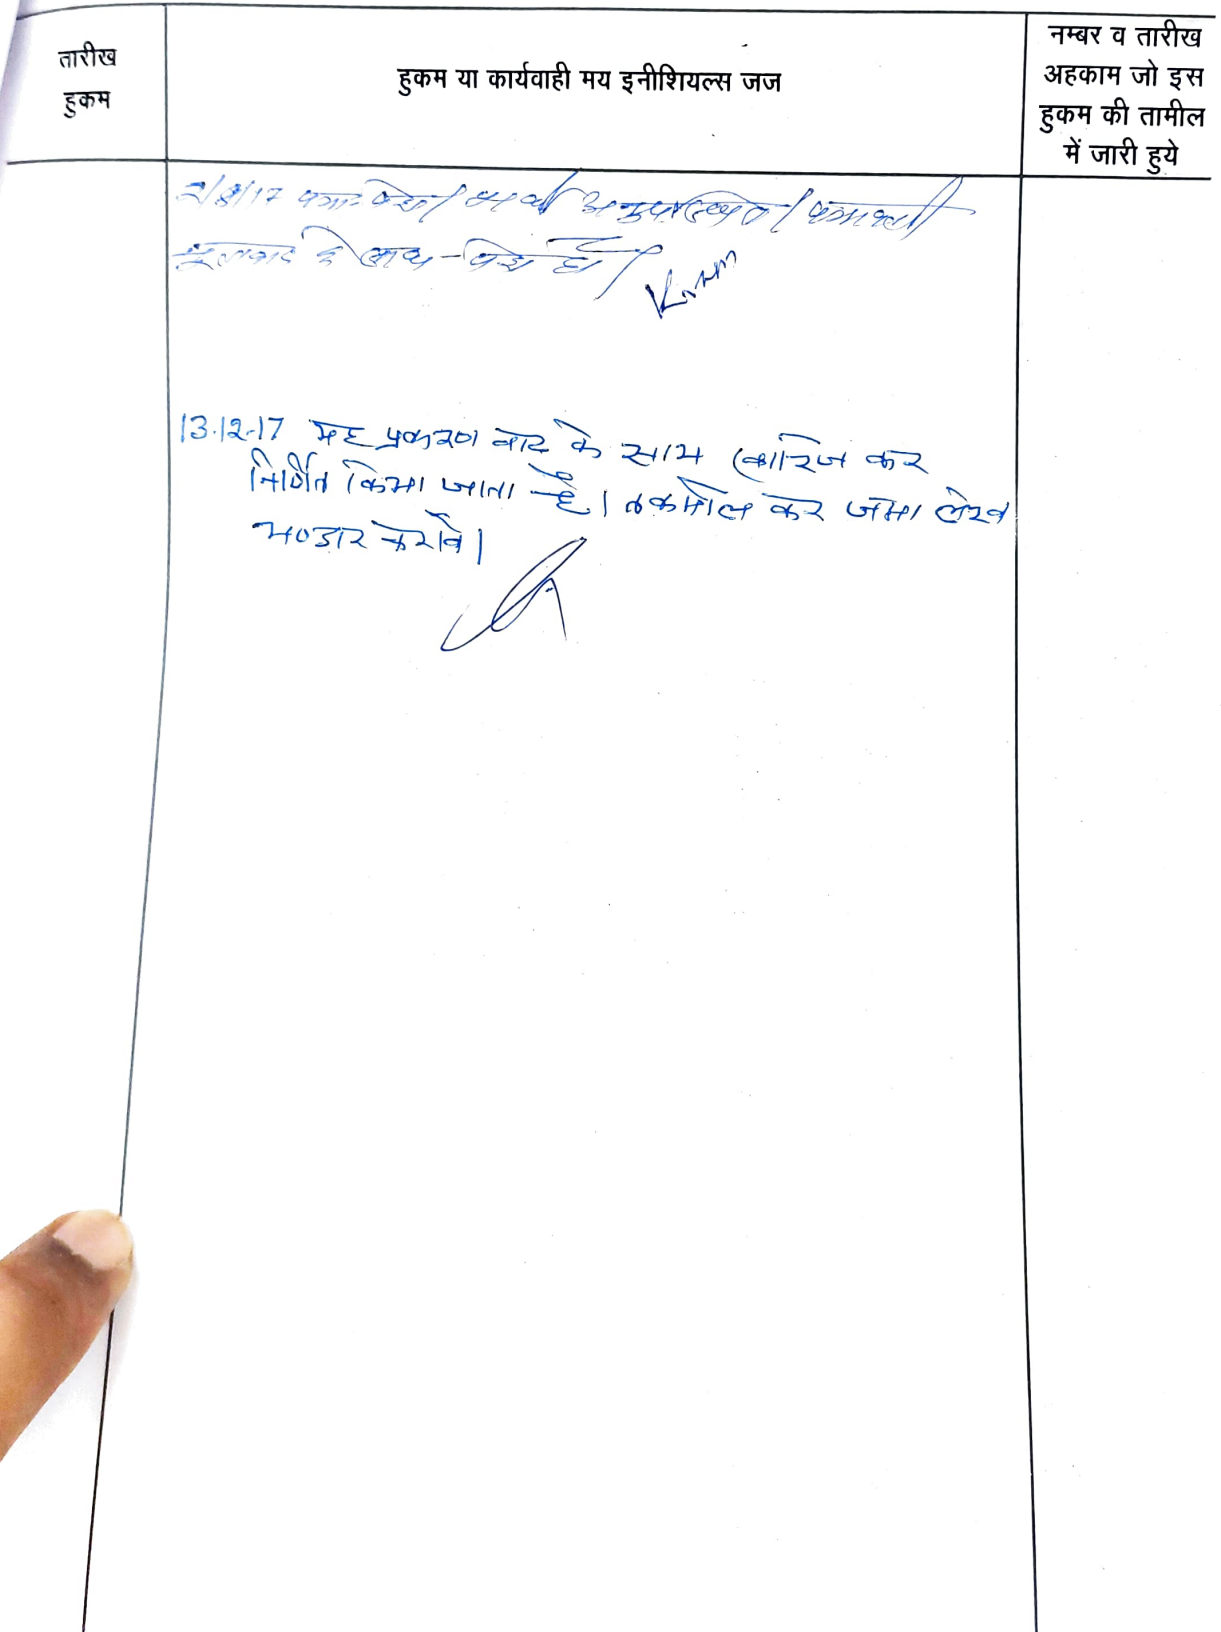 तारीख
हुकम
हुकम या कार्यवाही मय इनीशियल्स जज
नम्बर व तारीख
अहकाम जो इस
हुकम की तामील
में जारी हुये
अनुपस्थित / पत्रावली
मूलवाद के साथ पेश हो।
13.12.17 यह प्रकरण वाद के साथ खारिज कर
निर्णित किया जाता है। तकमील कर जमा लेख
भण्डार करावें।